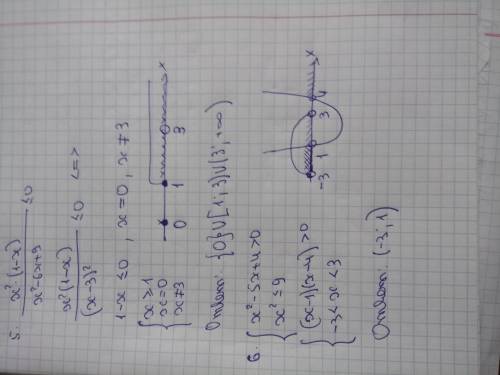 5. x²·(1-x) / x²-6x+9 ≤ 0
x²(1-x) / (x-3)² ≤ 0 <=>
1-x ≤ 0 , x=0 , x≠3
{ x ≥ 1
x=0
x≠3
0 1 3 x
Ответ: {0}∪[1;3)∪(3;+∞)
6. { x²-5x+4>0
x² ≤ 9
{ (x-1)(x-4)>0
-3<x<3
-3 1 3 4 x
Ответ: (-3; 1)